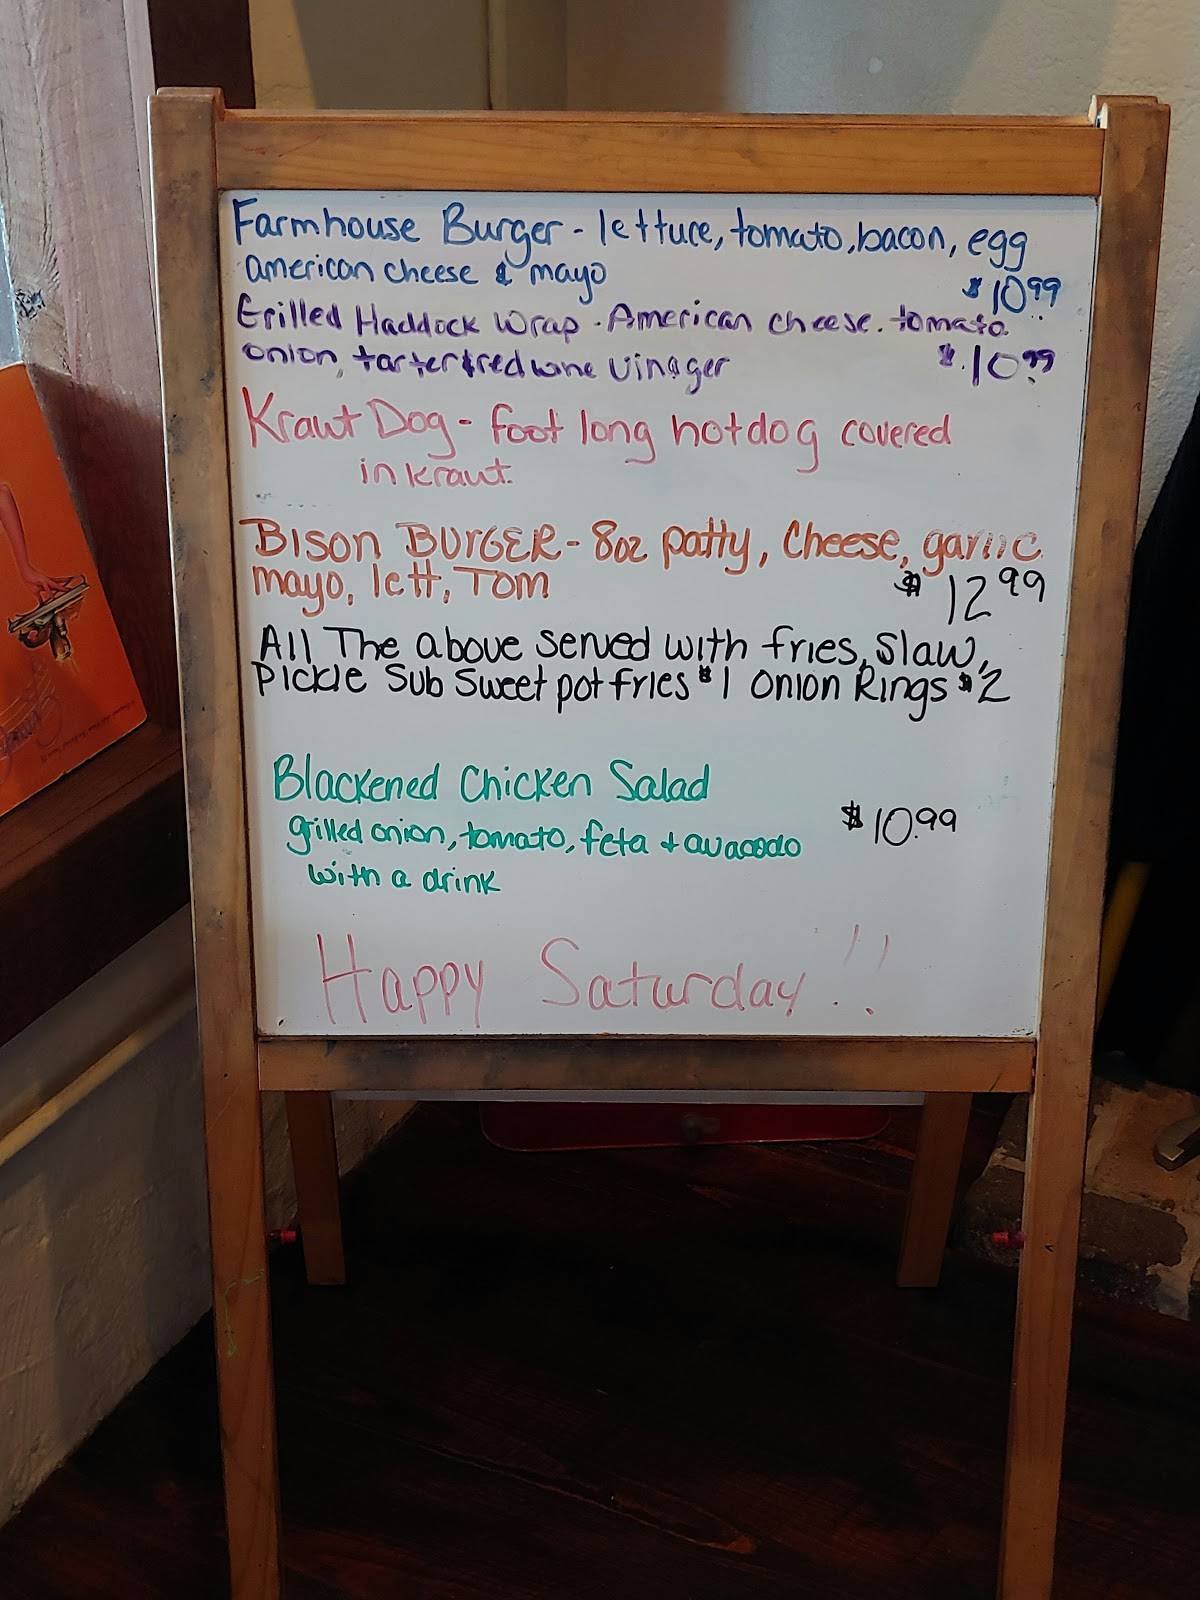 Farmhouse Burger - lettuce, tomato, bacon, egg
american cheese & mayo $10.99
Grilled Haddock Wrap - American cheese, tomato
onion, tarter & red wine Vinager $.10.99
Kraut Dog - foot long hotdog covered
in kraut.
Bison BURGER - 8oz patty, Cheese, garlic
mayo, lett, Tom $12.99
All The above served with fries, Slaw,
Pickle Sub Sweet pot fries $1 Onion Rings $2
Blackened Chicken Salad
grilled onion, tomato, feta + avacodo $10.99
with a drink
Happy Saturday!!